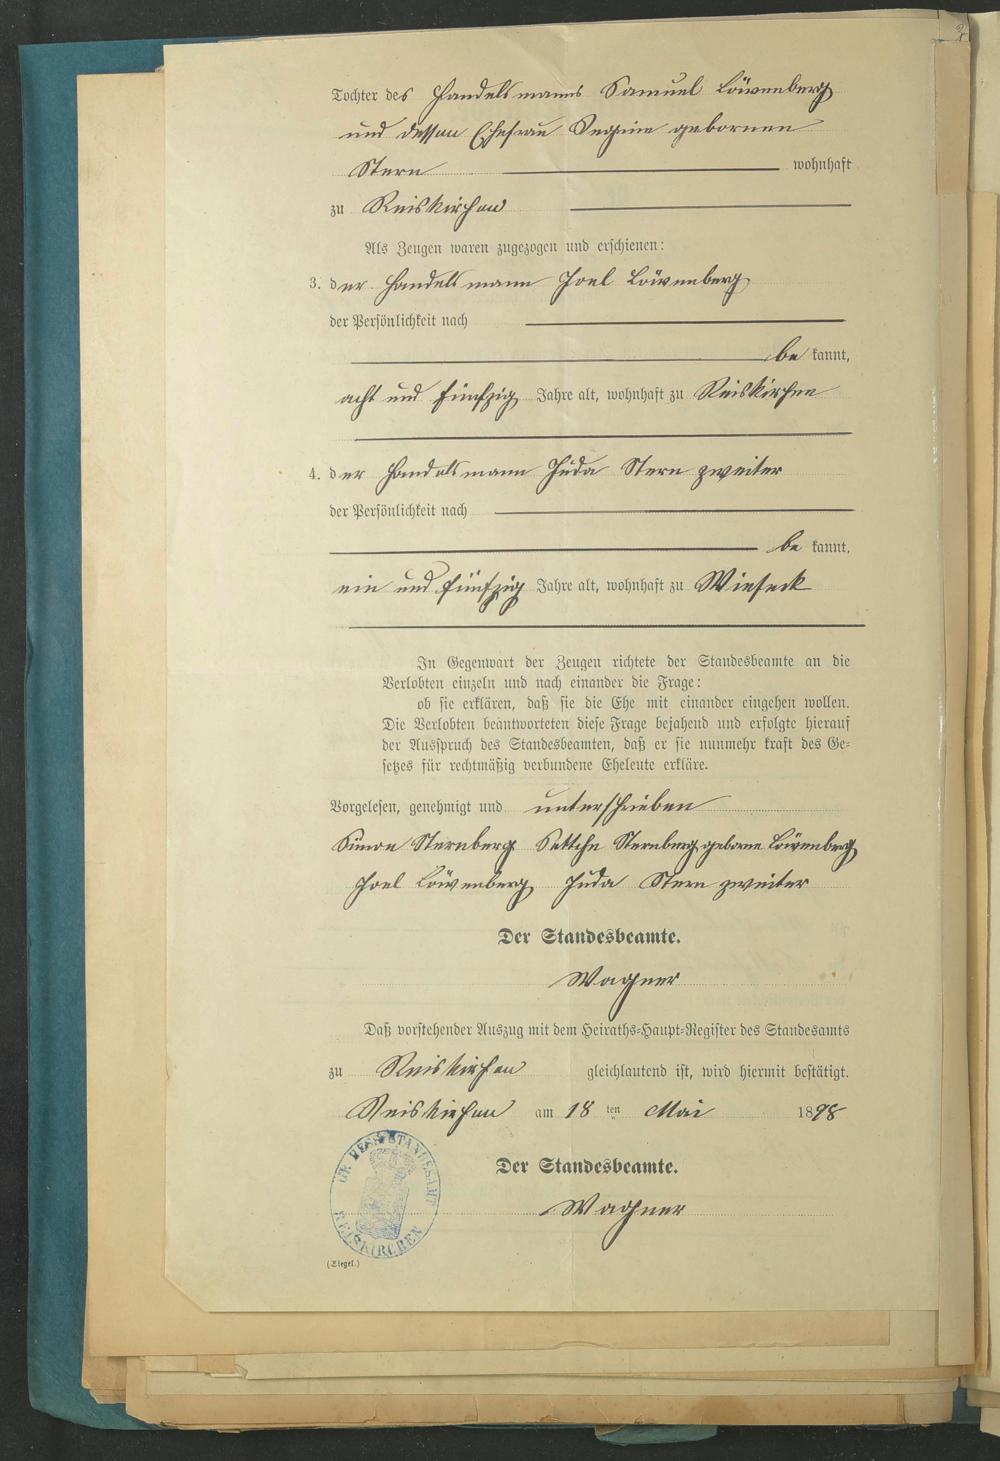 Tochter des Handelsmanns Samuel Löwenberg
und dessen Ehefrau Regine gebornen
Stern wohnhaft
zu Reiskirchen
Als Zeugen waren zugezogen und erschienen:
3. der Handelsmann Joel Löwenberg
der Persönlichkeit nach
be kannt,
acht und fünfzig Jahre alt, wohnhaft zu Reiskirchen
4. der Handelsmann Juda Stern zweiter
der Persönlichkeit nach
be kannt,
ein und fünfzig Jahre alt, wohnhaft zu Wieseck
In Gegenwart der Zeugen richtete der Standesbeamte an die
Verlobten einzeln und nach einander die Frage:
ob sie erklären, daß sie die Ehe mit einander eingehen wollen.
Die Verlobten beantworteten diese Frage bejahend und erfolgte hierauf
der Ausspruch des Standesbeamten, daß er sie nunmehr kraft des Ge-
setzes für rechtmäßig verbundene Eheleute erkläre.
Vorgelesen, genehmigt und unterschrieben
Simon Sternberg Settchen Sternberg geborne Löwenberg
Joel Löwenberg Juda Stern zweiter
Der Standesbeamte.
Wagner
Daß vorstehender Auszug mit dem Heiraths-Haupt-Register des Standesamts
zu Reiskirchen gleichlautend ist, wird hiermit bestätigt.
Reiskirchen am 18 ten Mai 1898
Der Standesbeamte.
Wagner
GR. HESS. STANDESAMT
REISKIRCHEN
(Siegel.)